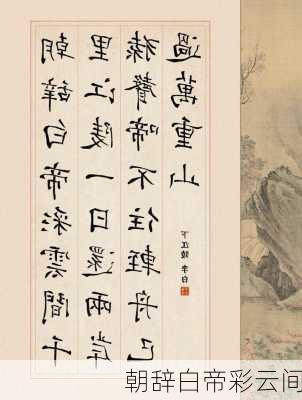 朝辭白帝彩雲間千
里江陵一日還兩岸
猿聲啼不住輕舟已
過萬重山
下江陵 李白
朝辞白帝彩云间